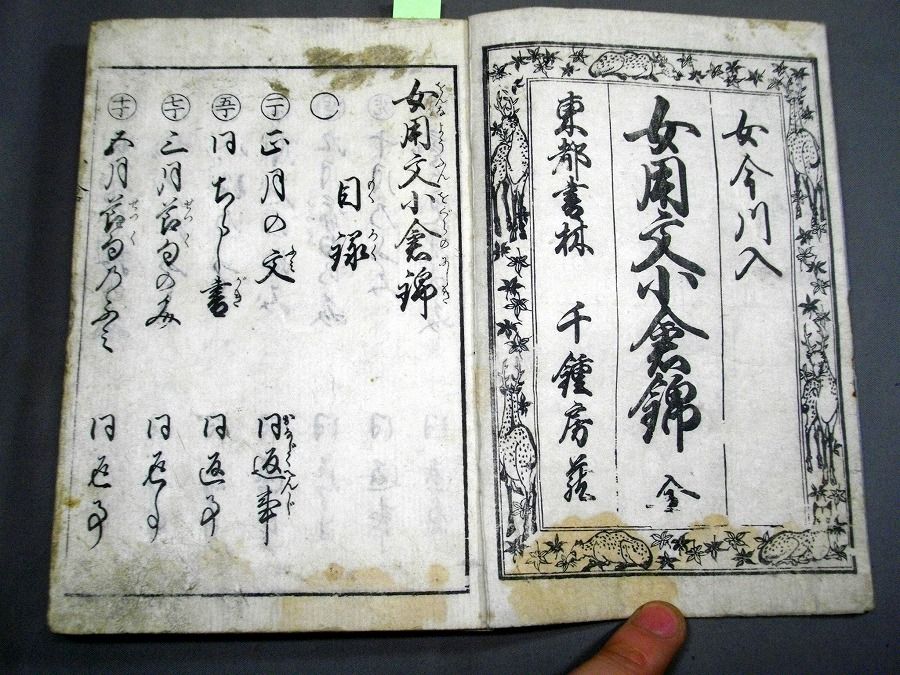 女今川入
女用文小倉錦 全
東都書林 千鍾房蔵
女用文小倉錦
目録
一丁 正月の文 同返事
五丁 同ちらし書 同返事
七丁 三月節句の文 同返事
十丁 五月節句乃ふミ 同返事